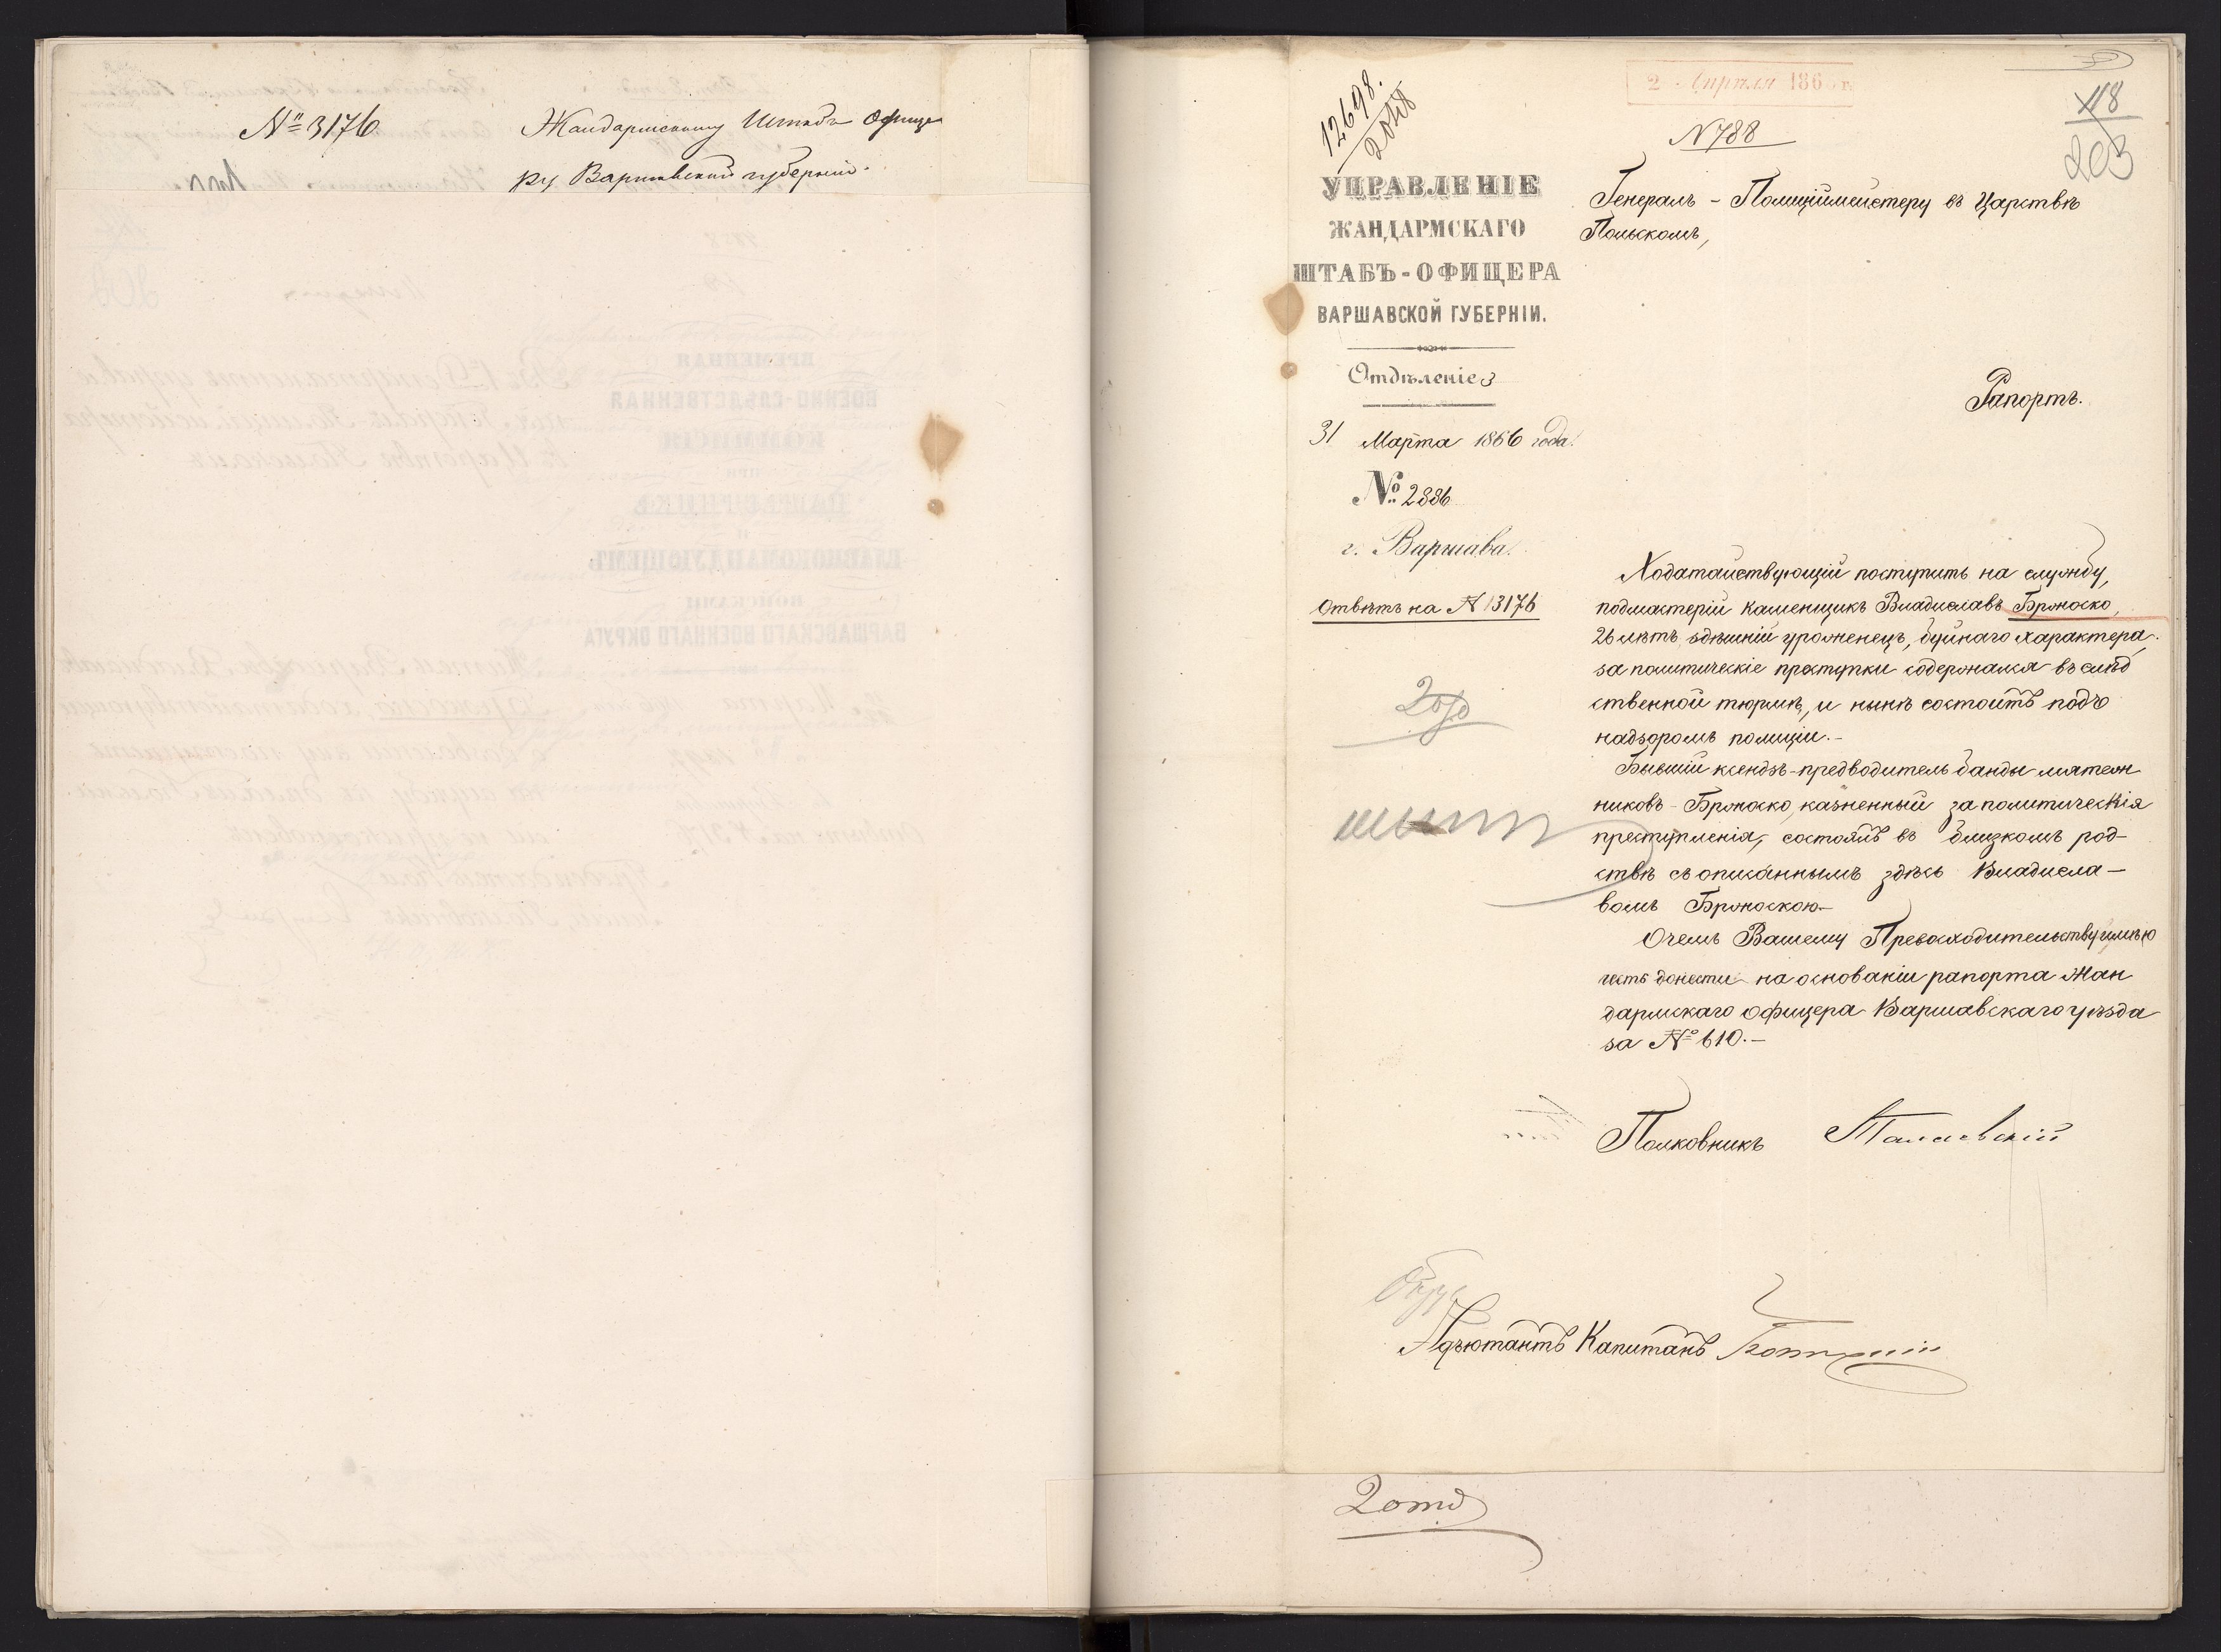 № 3176
Жандармскому Штабъ Офице
ру Варшавской губерніи.
12698.
2 Апрѣля 186 г.
N 788
118
203
УПРАВЛЕНІЕ
ЖАНДАРМСКАГО
ШТАБЪ-ОФИЦЕРА
ВАРШАВСКОЙ ГУБЕРНІИ.
Отдѣленіе 3
31 Марта 1866 года.
№ 2886
г. Варшава.
Отвѣтъ на № 3176
Генералъ-Полиціймейстеру въ Царствѣ
Польскомъ,
Рапортъ.
Ходатайствующій поступить на службу,
подмастерій каменщикъ Владиславъ Бржоско,
26 лѣтъ здѣшній уроженецъ, буйнаго характера,
за политическіе проступки содержался въ слѣд
ственной тюрмѣ, и нынѣ состоитъ подъ
надзоромъ полиціи.-
Бывшій ксендзъ-предводитель банды мятеж
никовъ-Бржоско, казненный за политическія
преступленія, состоялъ въ близкомъ род-
ствѣ съ описаннымъ здѣсь Владисла-
вомъ Бржоскою-
О чемъ Вашему Превосходительству имѣю
честь донести на основаніи рапорта Жан
дармскаго офицера Варшавскаго уѣзда
за № 610.-
Полковникъ
Адъютантъ Капитанъ
2 отд